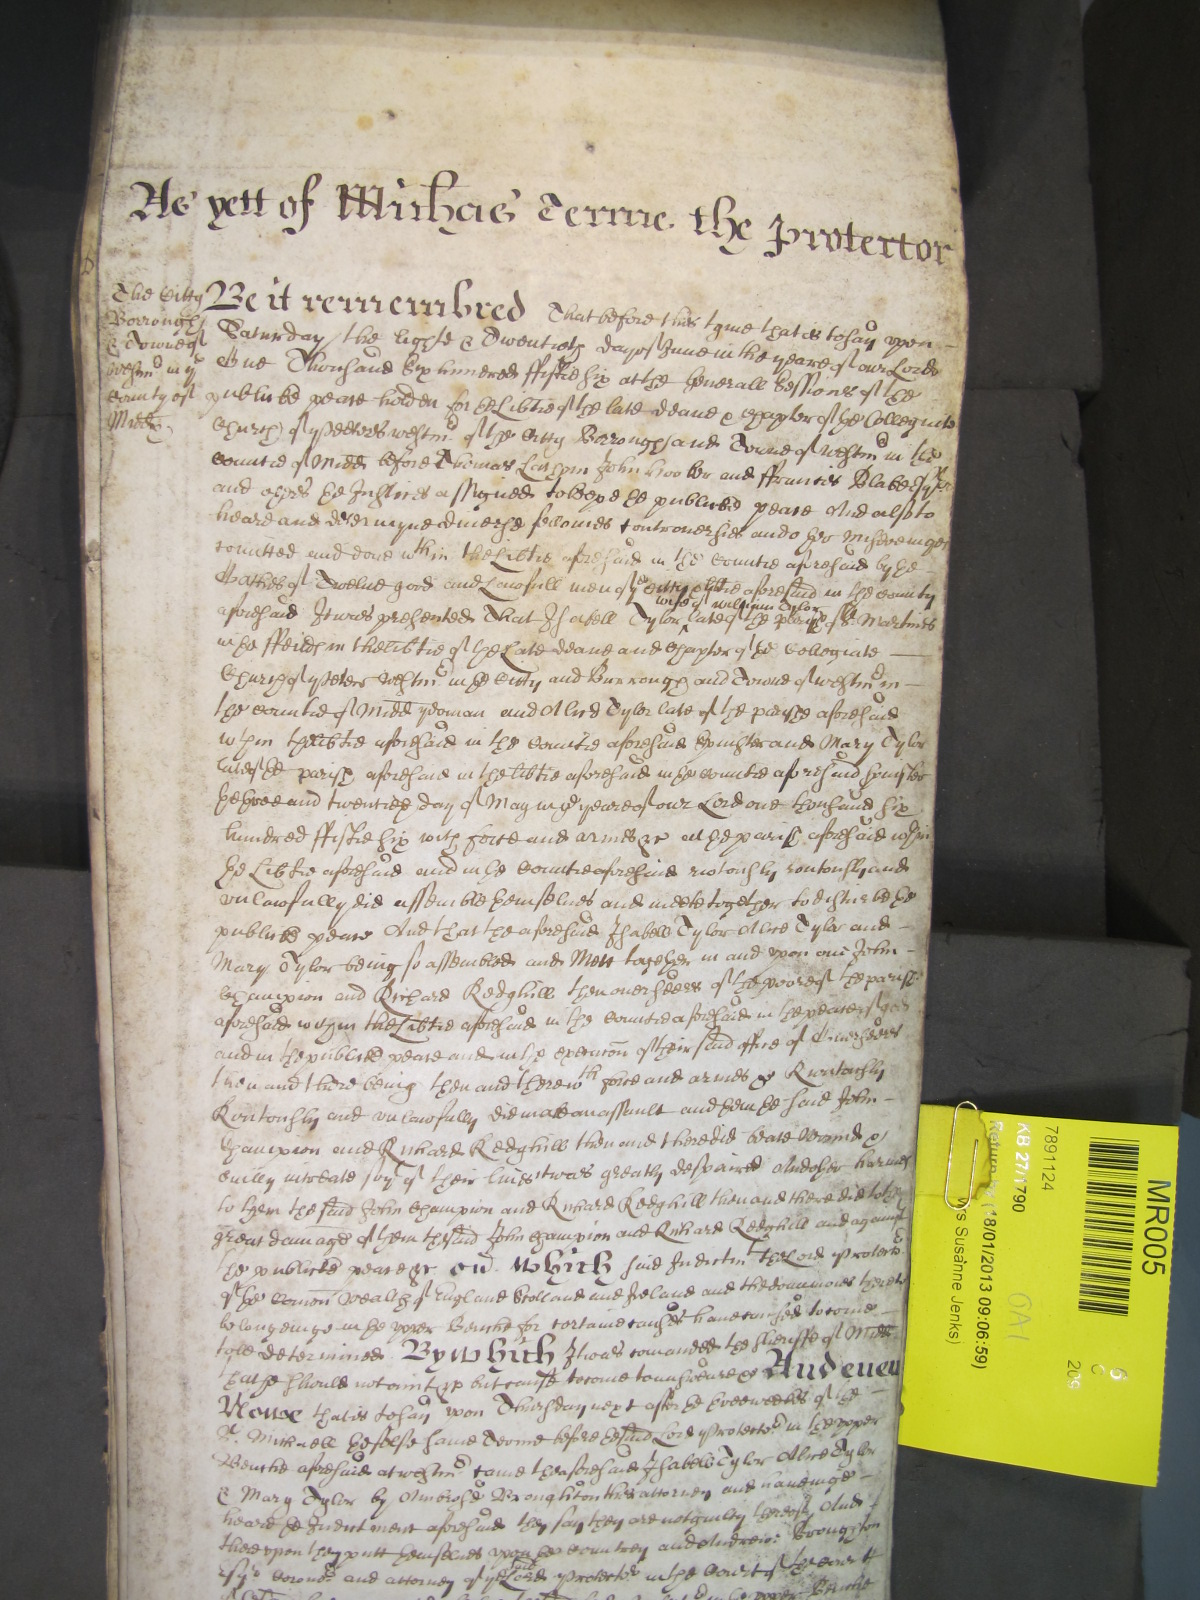 As yett of Michas Terme the Protector
The Citty
Borrough
& Towne of
Westmr in ye
County of
Middx
Be it remembred That before this tyme that is to say upon
Saturday the Eight & Twentieth day of June in the yeare of our Lord
One Thousand Six hundred fiftie six at the Generall Sessions of the
publicke peace holden for the Libtie of the late Deane & Chapter of the Collegiate
Church of St Peters Westmr of the Citty Borrough and Towne of Westmr in the
Countie of Midd before Thomas Latham John Hooker and ffrancis Blake Esqrs
and others the Justices assigned to keepe the publicke peace And also to
heare and determyne divers fellonies controversies and other misdemeanors
comitted and done wthin the Libtie aforesaid in the Countie aforesaid by the
Oathes of Twelve good and Lawfull men of the Citty & libtie aforesaid in the County
wife of William Tylor
aforesaid It was presented That Isabell Tylor late of the parish of St Martins
in the ffeilds in the libtie of the Late deane and Chapter of the Collegiate
Church of St Peters Westmr in the Citty and Burrough and Towne of Westmr in
the Countie of Midd yeoman and Alice Tylor late of the parishe aforesaid
wthin the libtie aforesaid in the Countie aforesaid Spinster and Mary Tylor
late of the parish aforesaid in the libtie aforesaid in the Countie aforesaid spinster
the three and twentieth day of May in the yeare of our Lord one thousand six
hundred fiftie six with force and armes &c at the parish aforesaid wthin
the Libtie aforesaid and in the Countie aforesaid riotously routously and
unlawfully did assemble themselves and meete together to disturbe the
publicke peace And that the aforesaid Isabell Tylor Alice Tylor and
Mary Tylor being so assembled and Mett together in and upon one John
Champion and Richard Redghill then overseers of the poore of the parish
aforesaid within the Libtie aforesaid in the Countie aforesaid in the peace of god
and in the publicke peace and in the execucon of their said office of Overseers
then and there being then and there wth force and armes &c Riotously
Routously and unlawfully did make an assault and them the said John
Champion and Richard Redghill then and there did beate Wound &
evilly intreate soe yt of their lives it was greatly despaired And other harmes
to them the said John Champion and Richard Redghill then and there did to the
great damage of them the said John Champion and Richard Redghill and against
the publicke peace &c which said Indictmt the Lord Protector
of the Comon Wealth of England Scotland and Ireland and the dominions thereto
belonginge in the upper Bench for certaine causes hath caused to come
to be determined By which It was comanded the sheriffe of Midd
that he should not omitt &c but cause to come to answeare &c And even
Nowe that is to say upon Thursday next after the three weekes of the
St Michaell the selfe same Terme before the said Lord Protector in the upper
Bench aforesaid at Westmr came the aforesaid Isabell Tylor Alice Tylor
& Mary Tylor by Ambrose Broughton their attorney and havinge
heard the Inditement aforesaid they say they are not guilty thereof And
thereupon they putt themselves upon the Countrey and Andrewe Broughton
Esqr Coroner and attorney of ye Lord Protector in the Court of the
MR005
7891124
KB 27/1790
(18/01/2013 09:06:59)
Mrs Susanne Jenks)
209